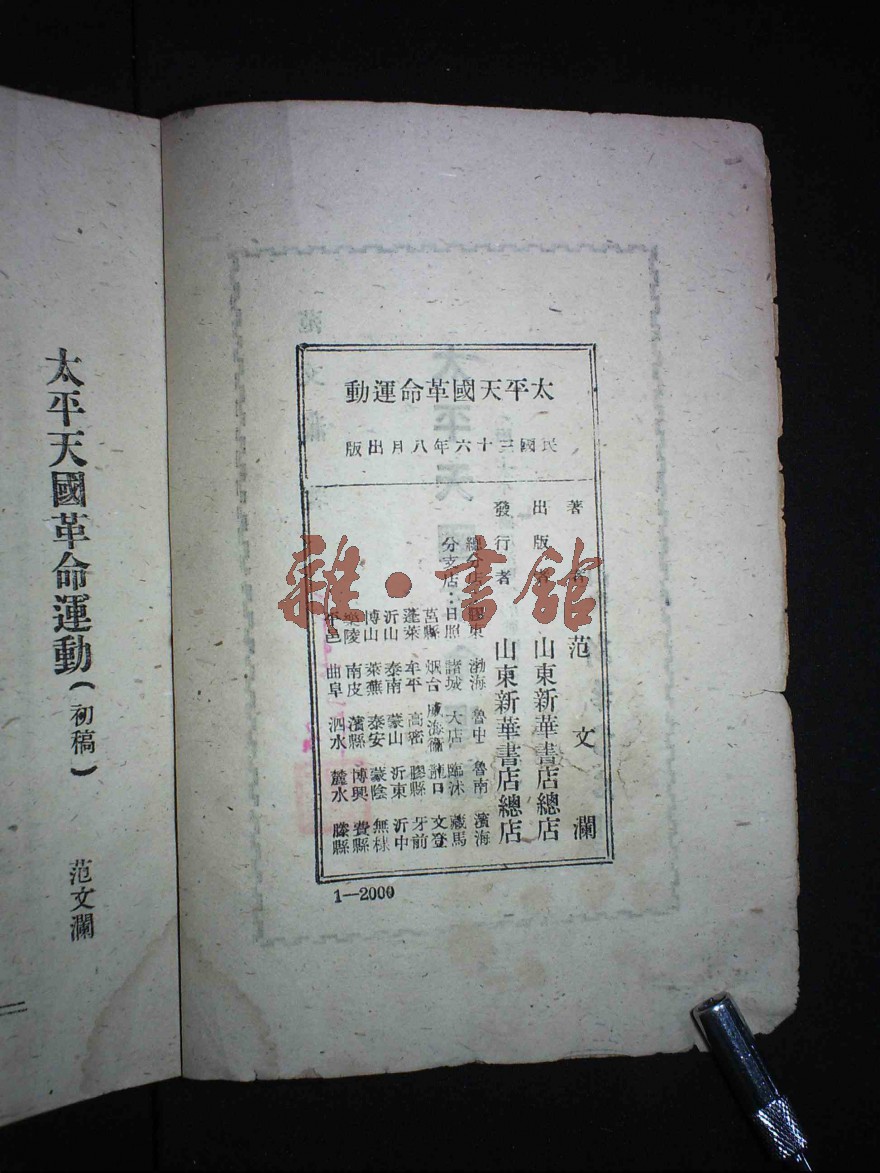 太平天國革命運動
民國三十六年八月出版
著者 范文瀾
出版者 山東新華書店總店
發行者 山東新華書店總店
總分店：膠東 渤海 魯中 魯南 濱海
分支店：日照 諸城 大店 臨沭 藏馬
莒縣 烟台 威海衛 龍口 文登
蓬萊 牟平 高密 膠縣 牙前
沂山 泰南 蒙山 沂東 沂中
博山 萊蕪 泰安 蒙陰 無棣
樂陵 南皮 濱縣 博興 費縣
平邑 曲阜 泗水 麓水 滕縣
1—2000
雜·書館
太平天國革命運動(初稿)
范文瀾
二